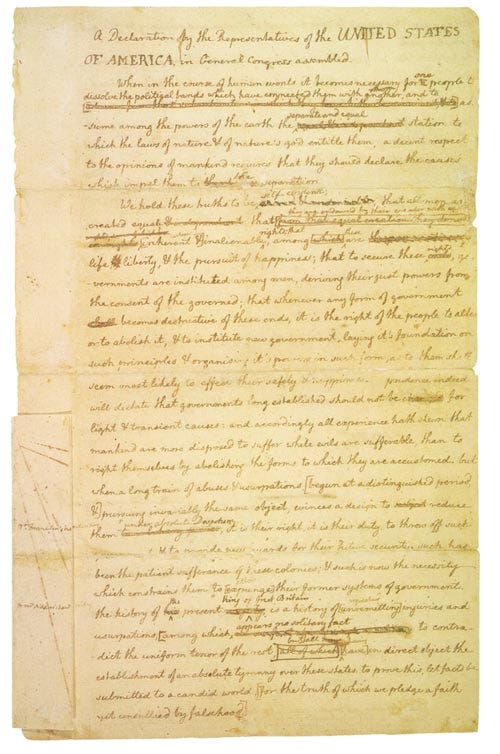 A Declaration by the Representatives of the UNITED STATES
OF AMERICA, in General Congress assembled.
When in the course of human events it becomes necessary for one people to
dissolve the political bands which have connected them with another, and to
as-
separate and equal
sume among the powers of the earth the station to
which the laws of nature & of nature's god entitle them, a decent respect
to the opinions of mankind requires that they should declare the causes
which impel them to the separation.
self-evident;
We hold these truths to be that all men are
they are endowed by their creator with
created equal & that from that equal creation they derived
rights; that these
inherent & inalienable, among which are
life & liberty, & the pursuit of happiness; that to secure these rights, go-
vernments are instituted among men, deriving their just powers from
the consent of the governed; that whenever any form of government
shall becomes destructive of these ends, it is the right of the people to alter
or to abolish it, & to institute new government, laying it's foundation on
such principles & organising it's powers in such form, as to them shall
seem most likely to effect their safety & happiness. prudence indeed
will dictate that governments long established should not be changed for
light & transient causes: and accordingly all experience hath shewn that
mankind are more disposed to suffer while evils are sufferable, than to
right themselves by abolishing the forms to which they are accustomed. but
when a long train of abuses & usurpations [begun at a distinguished period
& pursuing invariably the same object, evinces a design to reduce
under absolute Despotism
them it is their right, it is their duty, to throw off such
& to provide new guards for their future security. such has
been the patient sufferance of these colonies; & such is now the necessity
which constrains them to [expunge] their former systems of government.
the king of Great Britain
the history of his present is a history of [unremitting] injuries and
appears no solitary fact
usurpations, [among which, to contra-
but all have
dict the uniform tenor of the rest [all of which] [have] in direct object the
establishment of an absolute tyranny over these states. to prove this, let facts be
submitted to a candid world, [for the truth of which we pledge a faith
yet unsullied by falsehood]